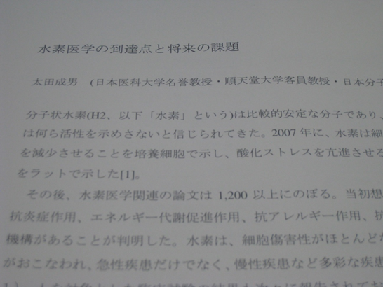 水素医学の到達点と将来の課題
太田成男 (日本医科大学名誉教授・順天堂大学客員教授・日本分子
分子状水素(H2、以下「水素」という)は比較的安定な分子であり、
は何ら活性を示めさないと信じられてきた。2007 年に、水素は細
を減少させることを培養細胞で示し、酸化ストレスを亢進させる
をラットで示した[1]。
その後、水素医学関連の論文は 1,200 以上にのぼる。当初想
抗炎症作用、エネルギー代謝促進作用、抗アレルギー作用、抗
機構があることが判明した。水素は、細胞傷害性がほとんど
がおこなわれ、急性疾患だけでなく、慢性疾患など多彩な疾患